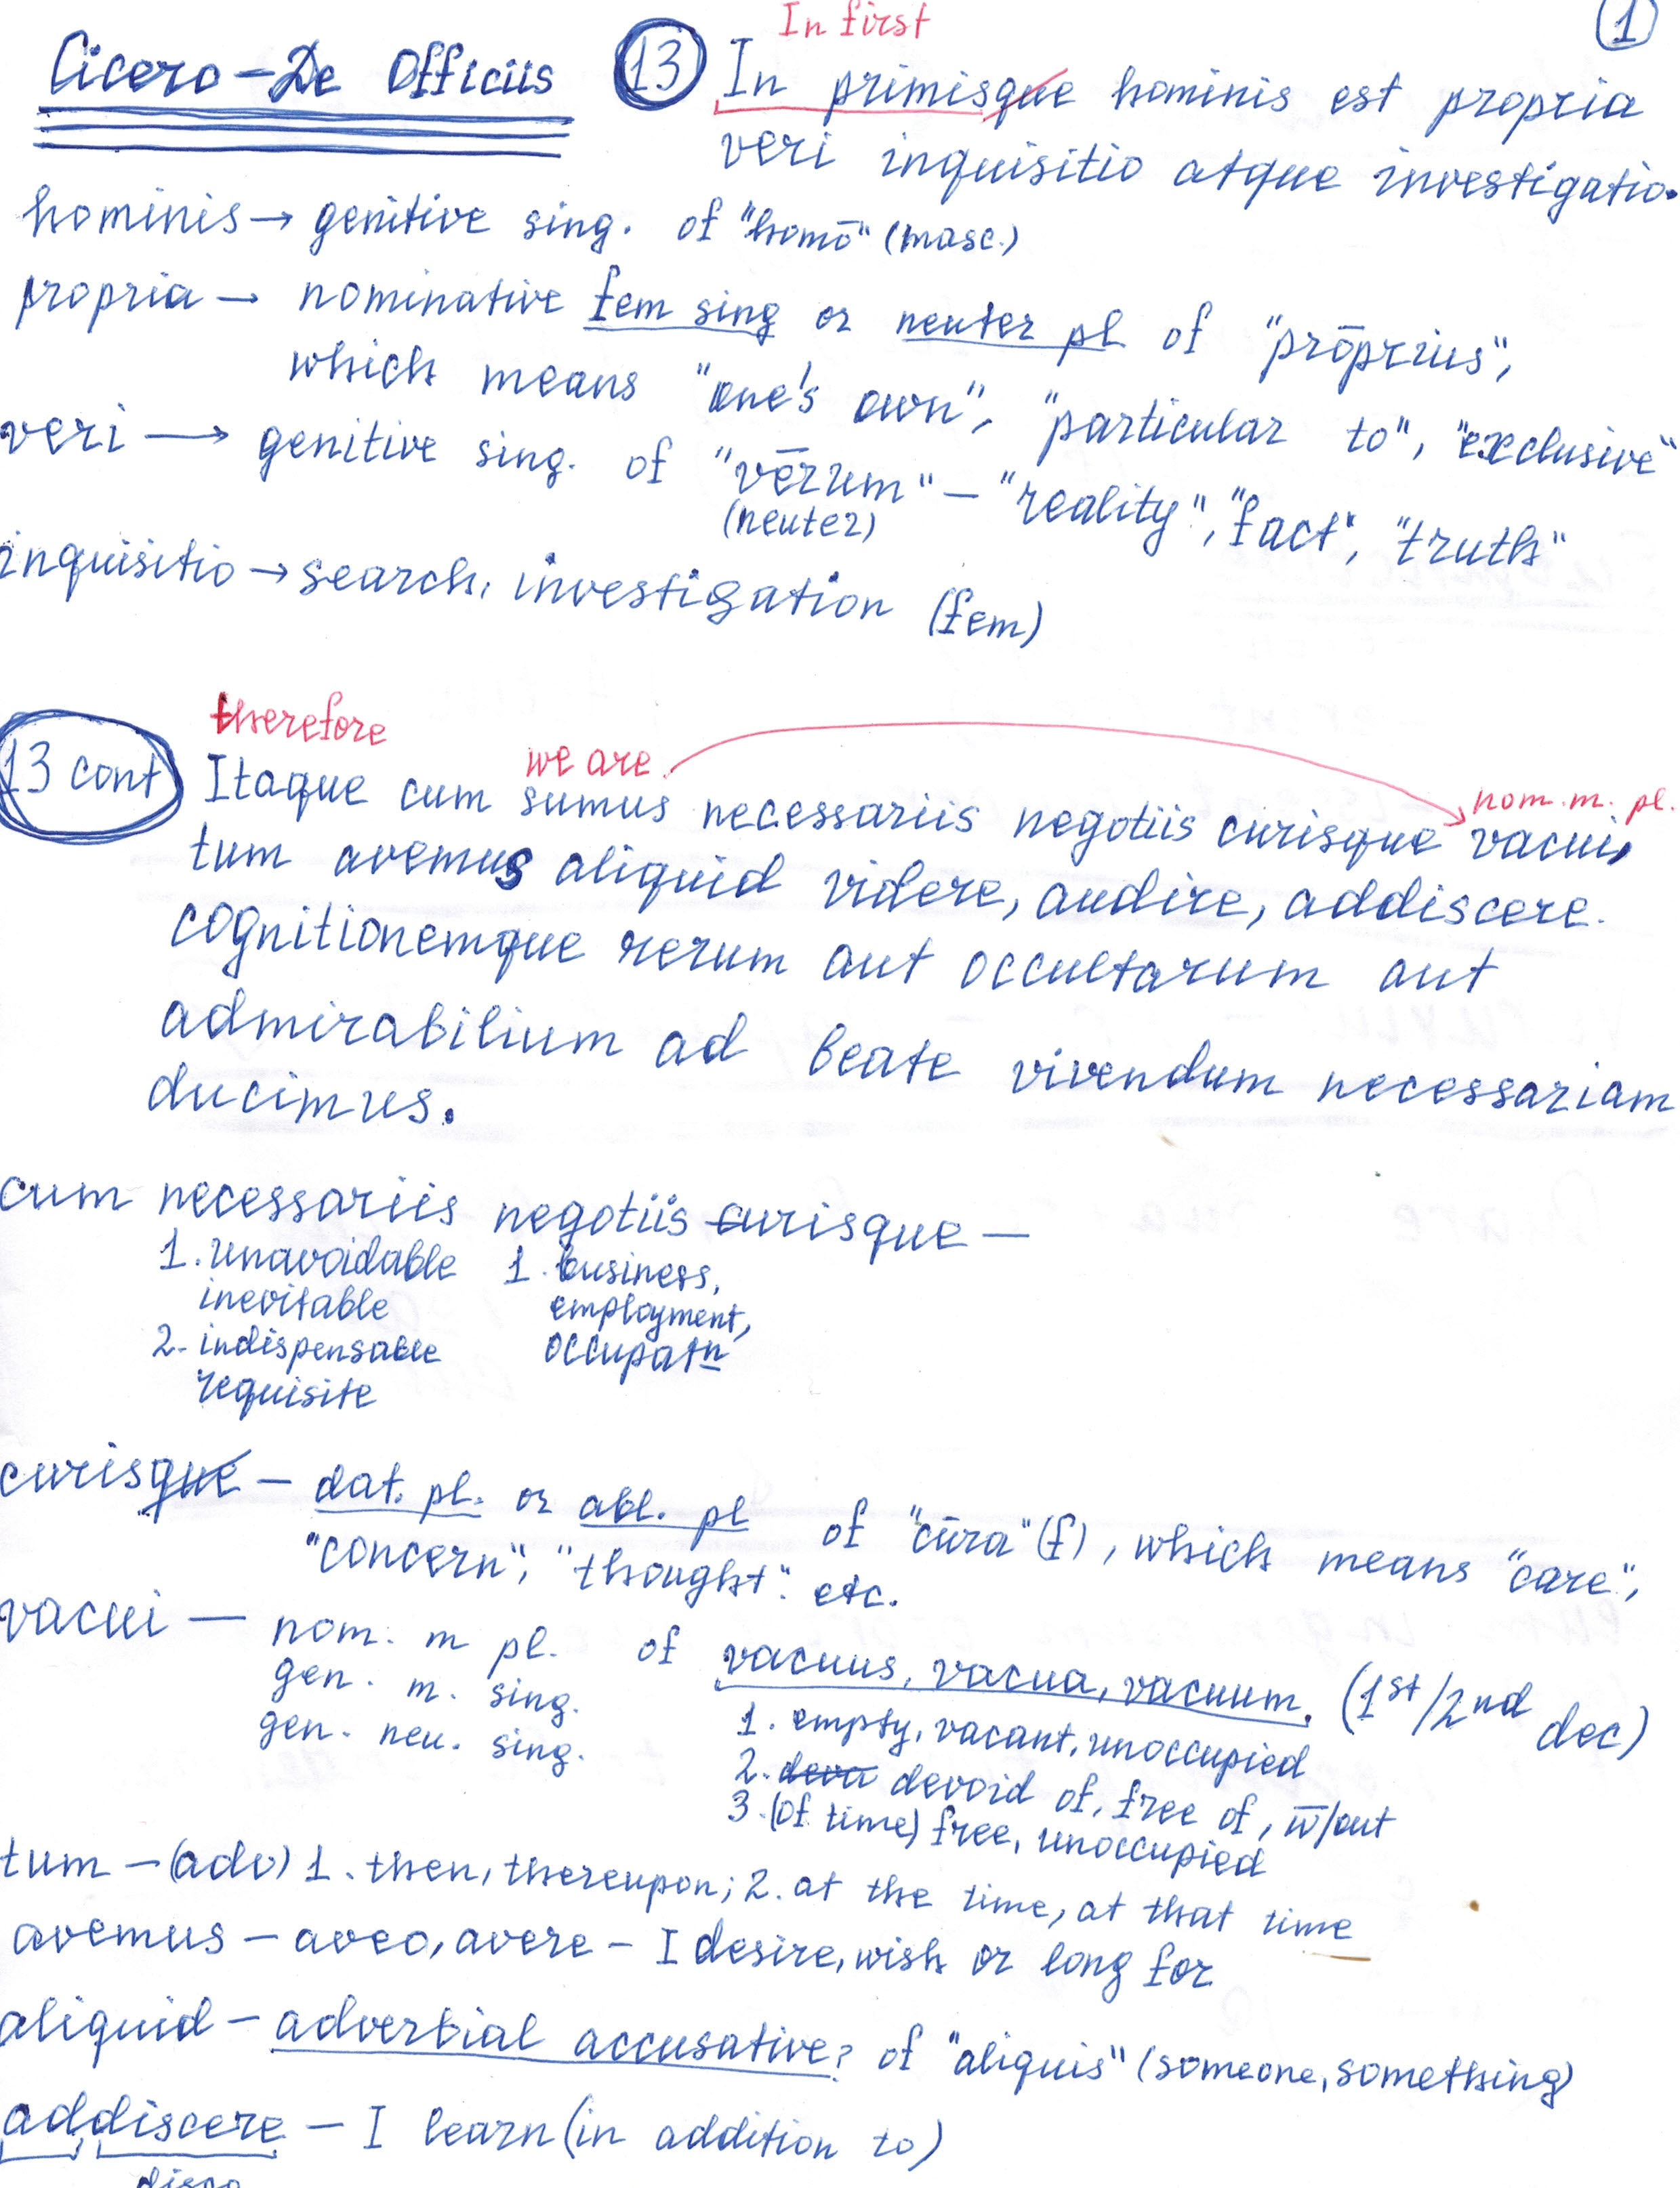 In first
1
Cicero – De Officiis
13 In primisque hominis est propria
veri inquisitio atque investigatio.
hominis → genitive sing. of "homō" (masc.)
propria → nominative fem sing or neuter pl of "prōprius",
which means "one's own", "particular to", "exclusive"
veri → genitive sing. of "vērum" – "reality", "fact", "truth"
(neuter)
inquisitio → search, investigation (fem)
therefore
we are
nom. m. pl.
13 cont Itaque cum sumus necessariis negotiis curisque vacui,
tum avemus aliquid videre, audire, addiscere.
cognitionemque rerum aut occultarum aut
admirabilium ad beate vivendum necessariam
ducimus.
cum necessariis negotiis curisque –
1. unavoidable 1. business,
inevitable employment,
2. indispensable occupatn
requisite
curisque – dat. pl. or abl. pl of "cūra" (f), which means "care",
"concern", "thought". etc.
vacui – nom. m pl. of vacuus, vacua, vacuum. (1st/2nd dec)
gen. m. sing.
gen. neu. sing.
1. empty, vacant, unoccupied
2. deva devoid of, free of, w/out
3. (of time) free, unoccupied
tum – (adv) 1. then, thereupon; 2. at the time, at that time
avemus – aveo, avere – I desire, wish or long for
aliquid – adverbial accusative? of "aliquis" (someone, something)
addiscere – I learn (in addition to)
disco